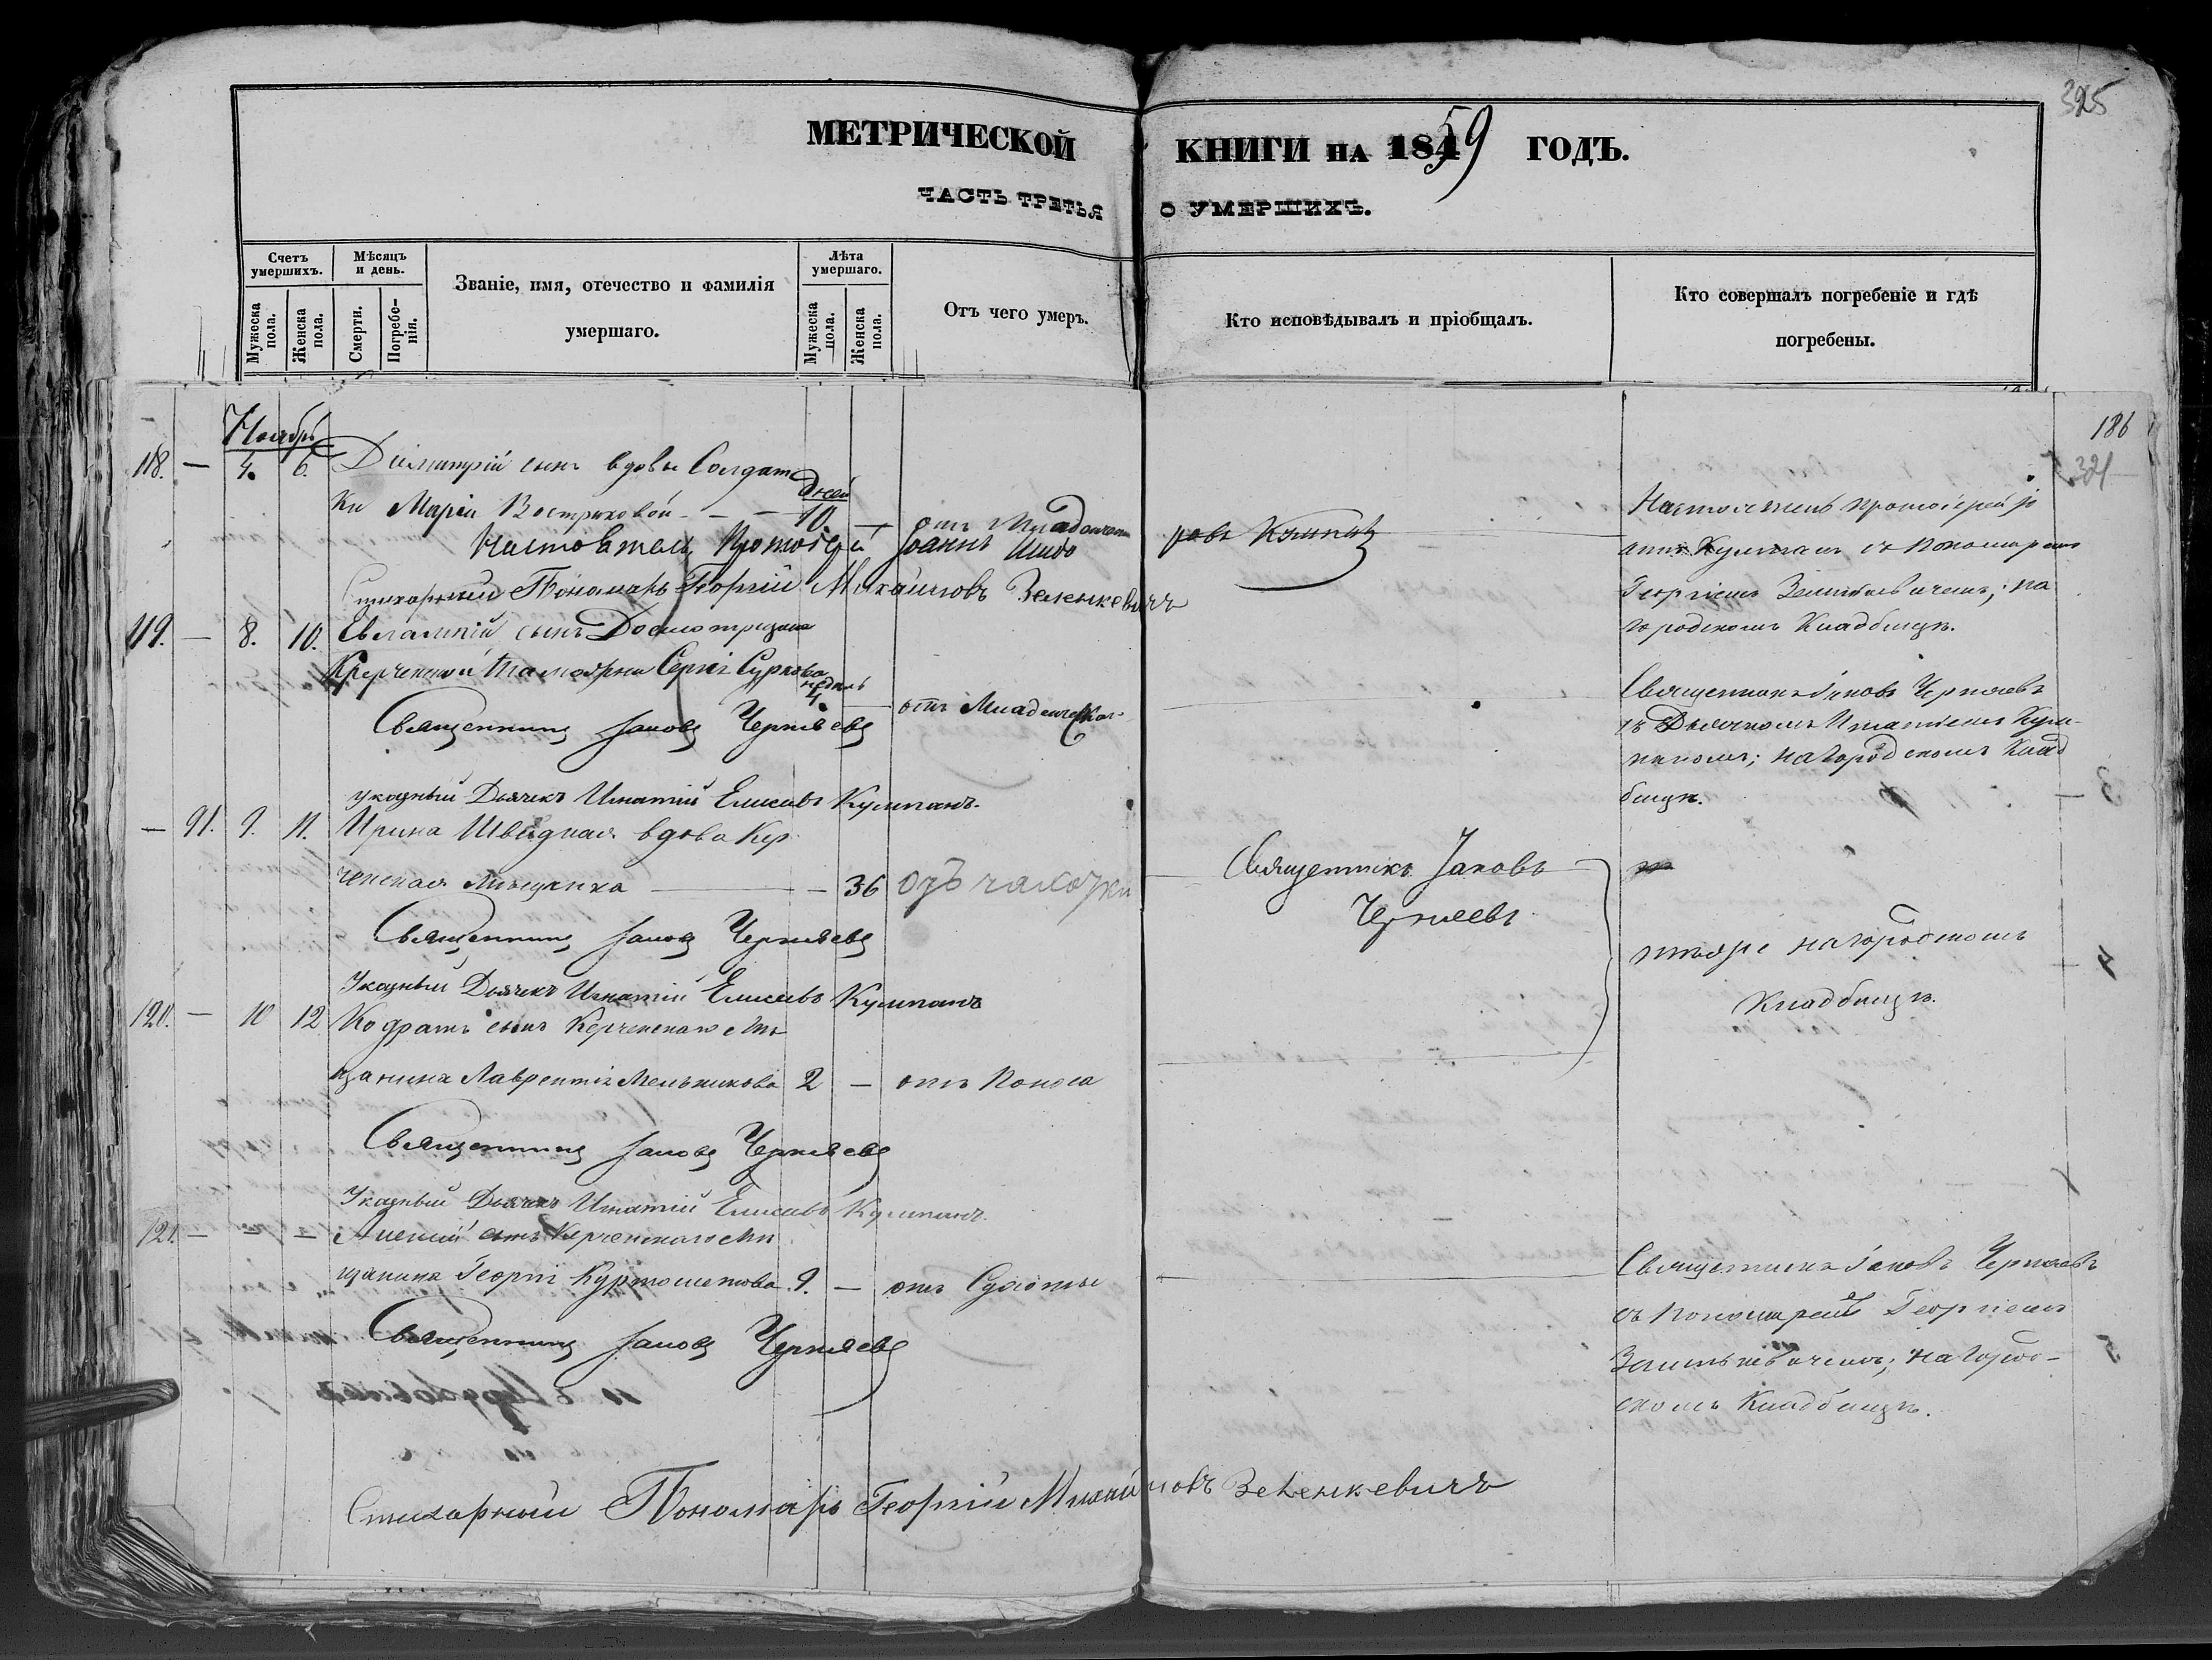 325
МЕТРИЧЕСКОЙ КНИГИ НА 1859 ГОДЪ.
ЧАСТЬ ТРЕТЬЯ О УМЕРШИХЪ.
Счетъ умершихъ.
Мужеска пола.
Женска пола.
Мѣсяцъ и день.
Смерти.
Погребенія.
Званіе, имя, отечество и фамилія
умершаго.
Лѣта умершаго.
Мужеска пола.
Женска пола.
Отъ чего умеръ.
Кто исповѣдывалъ и пріобщалъ.
Кто совершалъ погребеніе и гдѣ
погребены.
186
321
Ноябрь
118. — 4. 6. Димитрій сынъ вдовы Солдат
ки Маріи Востриковой — — дней 10 — отъ Младенческ
Настоятель Протоіерей Іоаннъ
Стихарный Пономарь Георгій Михайловъ Зеленкевичъ
Настоятель протоіерей Іо
аннъ съ Пономаремъ
Георгіемъ Зеленкевичемъ; на
городскомъ Кладбищѣ.
119. — 8. 10. Евлампій сынъ Досмотрщика
Керченской Таможни Сергія Суркова недѣль 4 — отъ Младенческой
Священникъ Іаковъ Черняевъ
указный Дьячекъ Игнатій Елисеевъ Кулипанъ.
Священникъ Іаковъ Черняевъ
съ Дьячкомъ Игнатіемъ Кули-
паномъ; на Городскомъ Клад
бищѣ.
— 91. 9. 11. Ирина Швидкая вдова Кер
ченская Мѣщанка — — 36 отъ чахотки
Священникъ Іаковъ
Черняевъ
тѣже на городскомъ
Кладбищѣ.
Священникъ Іаковъ Черняевъ
Указный Дьячекъ Игнатій Елисеевъ Кулипанъ
120. — 10 12 Кодратъ сынъ Керченскаго Мѣ
щанина Лаврентія Мельникова 2 — отъ Поноса
Священникъ Іаковъ Черняевъ
Указный Дьячекъ Игнатій Елисеевъ Кулипанъ
121. — — — Алексій сынъ Керченскаго Мѣ
щанина Георгія 9. — отъ Сухоты
Священникъ Іаковъ Черняевъ
Священникъ Іаковъ Черняевъ
съ Пономаремъ Георгіемъ
Зеленкевичемъ; на Город-
скомъ Кладбищѣ.
Стихарный Пономарь Георгій Михайловъ Зеленкевичъ